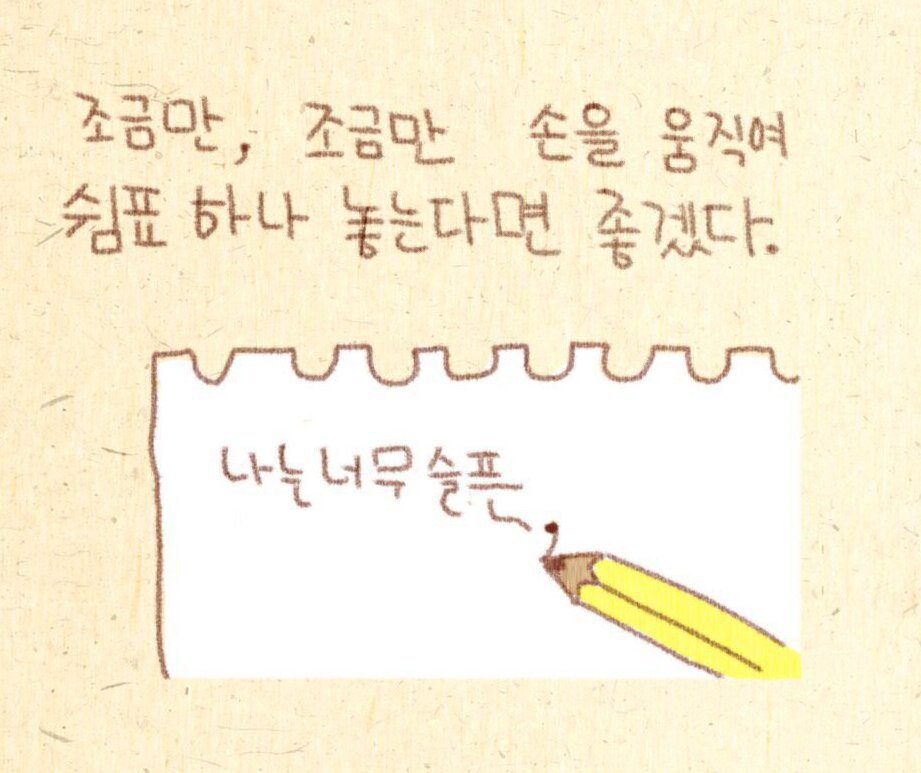 조금만, 조금만 손을 움직여
쉼표 하나 놓는다면 좋겠다.
나는 너무 슬픈,